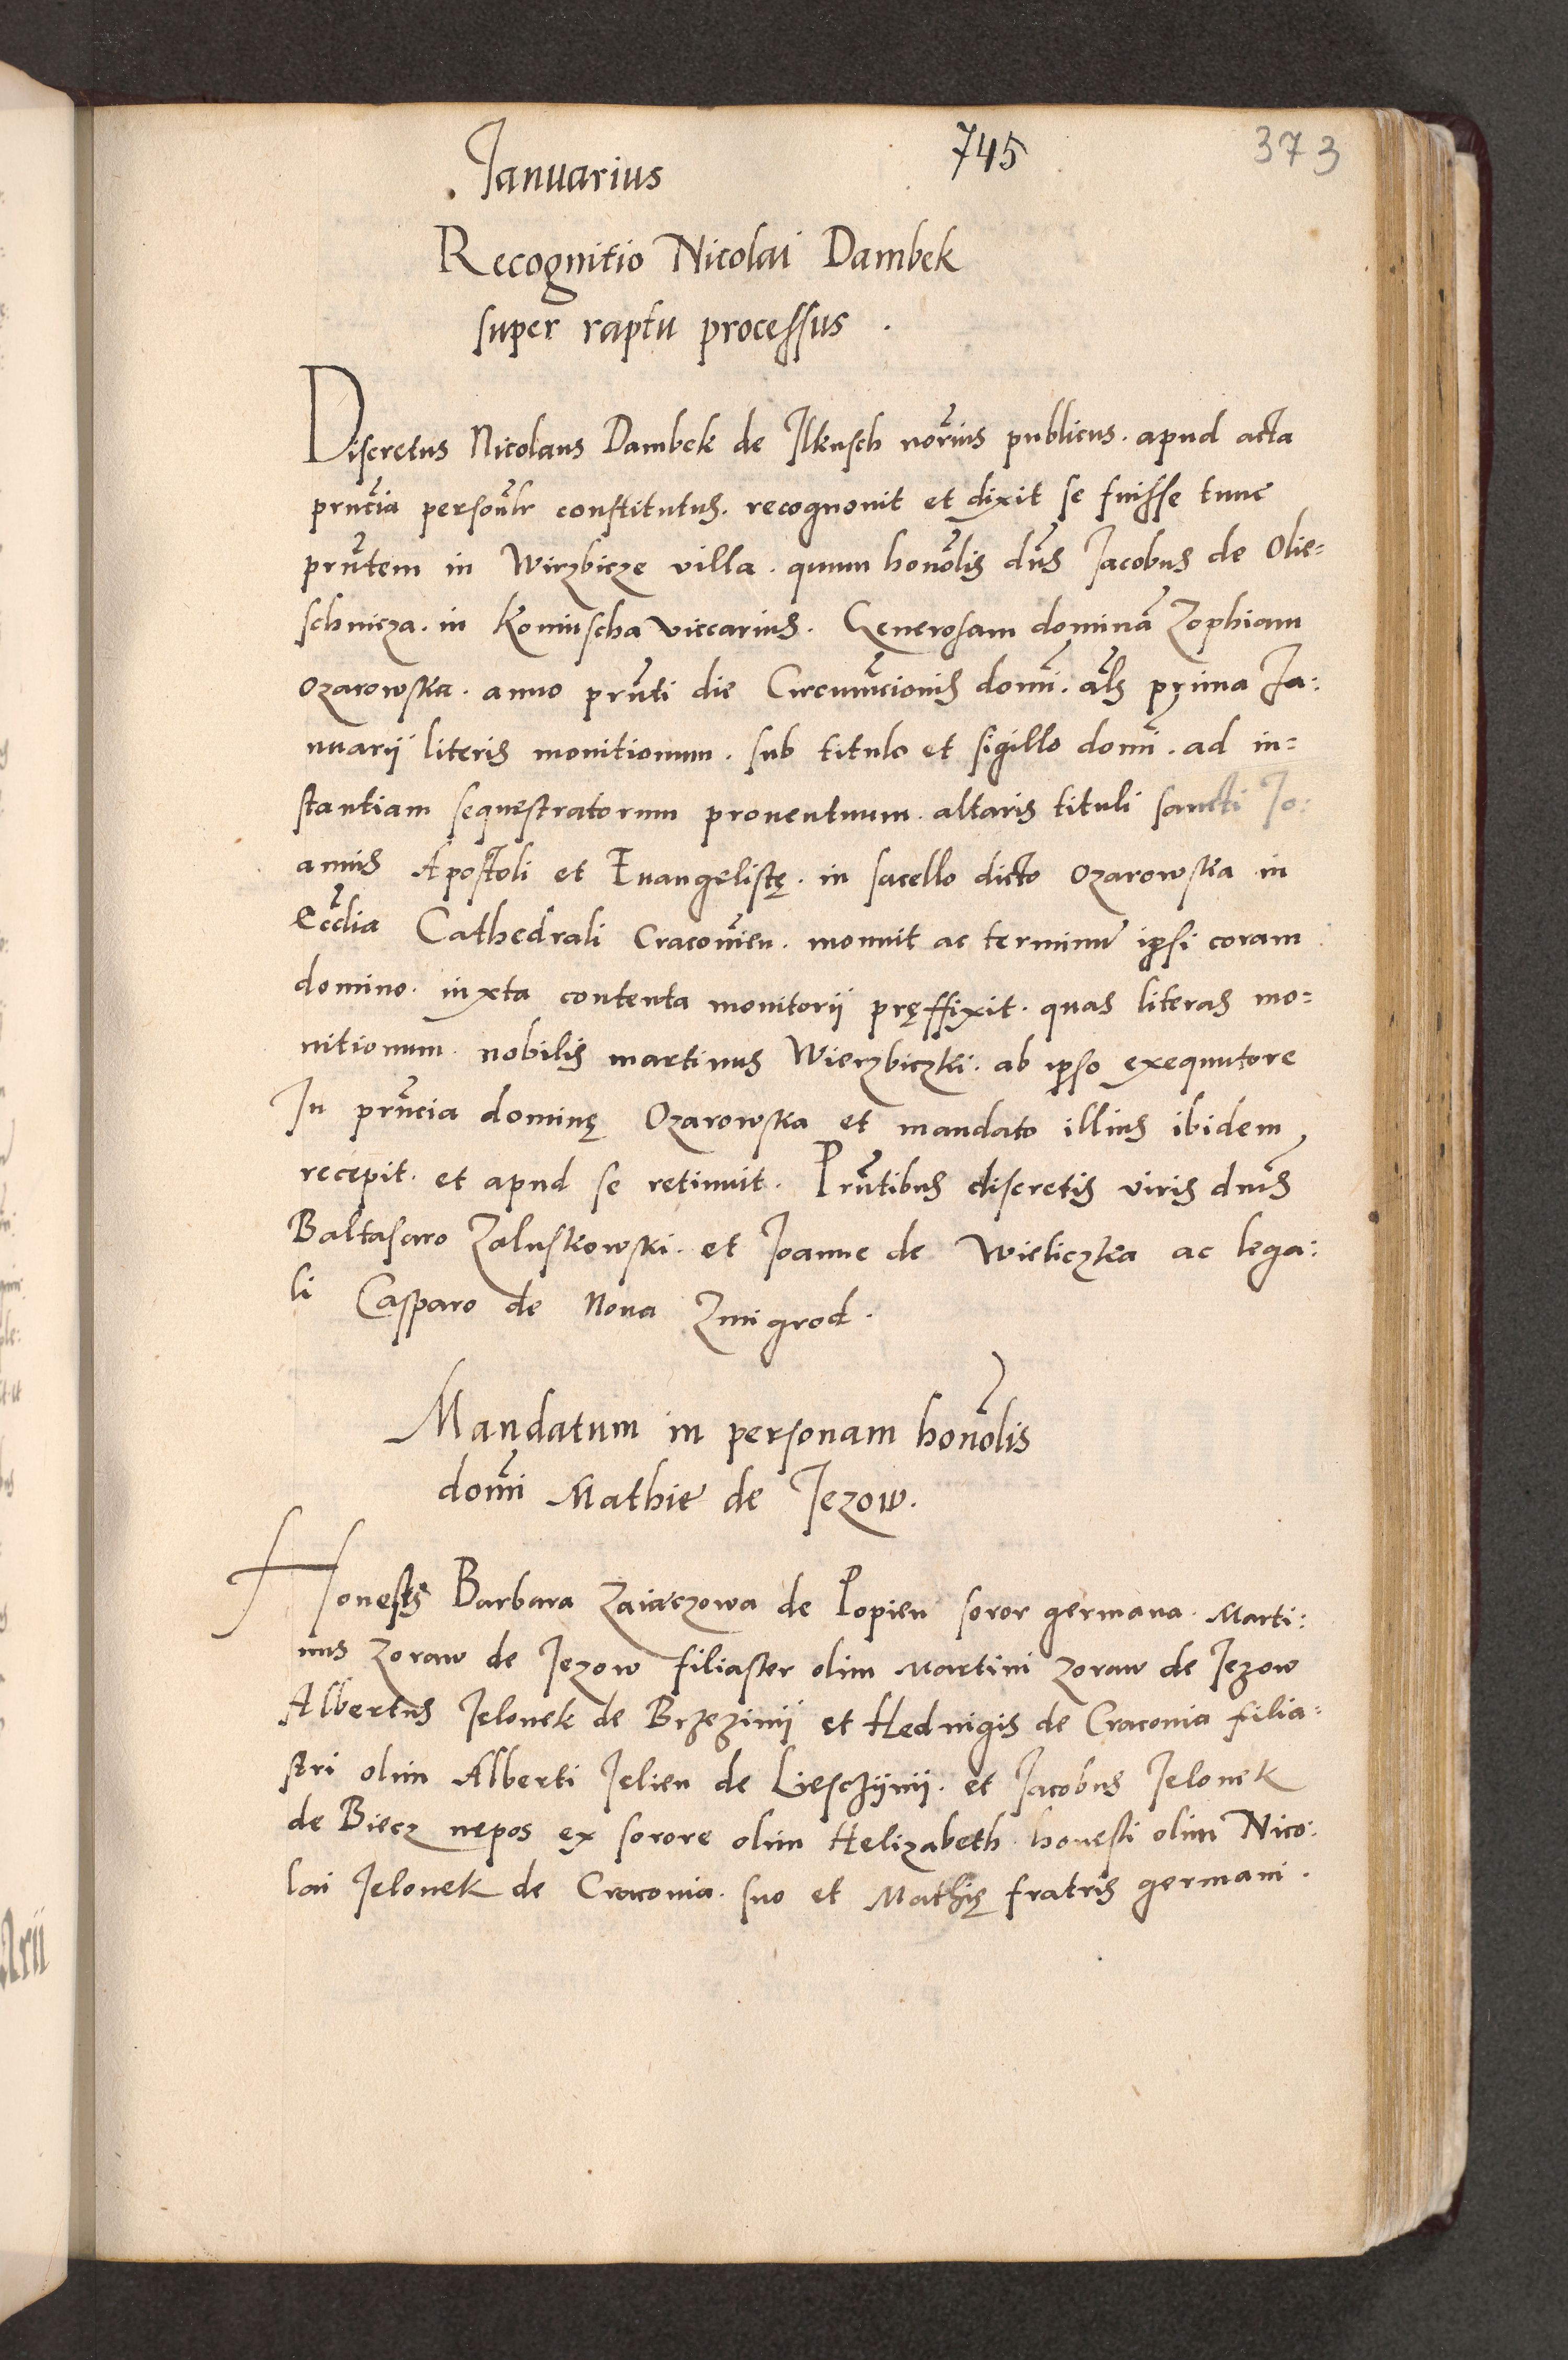 745 373
Ianuarius
Recognitio Nicolai Dambek
super raptu processus .
Discretus Nicolaus Dambek de Ilkusch norius publicus . apud acta
prncia personlr constitutus . recognovit et dixit se fuisse tunc
prntem in Wirzbicze villa . quum honolis dns Jacobus de Olie=
schnicza . in Koniuscha viccarius . Generosam dominã Zophiam
Ozarowska . anno prnti die Circumcisionis domi . als prima Ja:
nuarij literis monitionum . sub titulo et sigillo domi . ad in=
stantiam sequestratorum proventuum . altaris tituli sancti Io:
annis Apostoli et Evangelistę . in sacello dicto Ozarowska in
Ecclia Cathedrali Cracovien . monuit ac terminũ ipsi coram
domino . iuxta contenta monitorii pręffixit . quas literas mo=
nitionum . nobilis martinus Wierzbiczki . ab ipso exequutore
In prncia dominę Ozarowska et mandato illius ibidem
recepit . et apud se retinuit . Prntibus discretis viris dnis
Baltasaro Zaluskowski . et Joanne de Wieliczka ac lega:
li Casparo de Nova Zmigrod .
Mandatum in personam honolis
domi Mathie de Jezow .
Honestę Barbara Zaiaczowa de Popien soror germana . Marti:
nus Zoraw de Jezow filiaster olim Martini Zoraw de Jezow
Albertus Jelonek de Brzezinij et Hedvigis de Cracovia filia:
stri olim Alberti Jelien de Lieschijnij . et Jacobus Jelonek
de Biecz nepos ex sorore olim Helizabeth . honesti olim Nico:
lai Jelonek de Cracovia . suo et Mathię fratris germani .